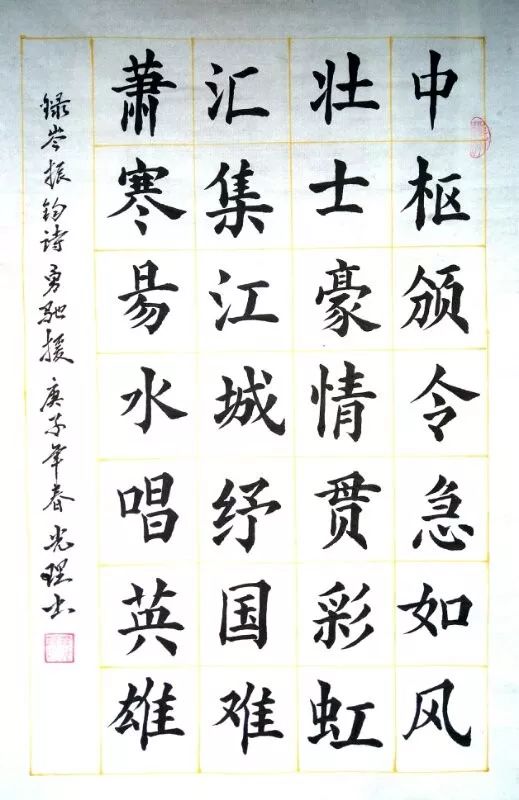 中枢颁令急如风
壮士豪情贯彩虹
汇集江城纾国难
萧寒易水唱英雄
录岑振钧诗勇驰援庚子年春光理书